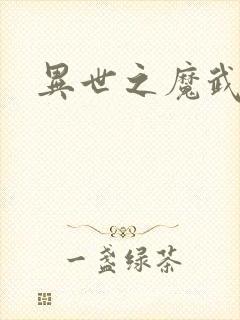 異世之魔武
一盏绿茶